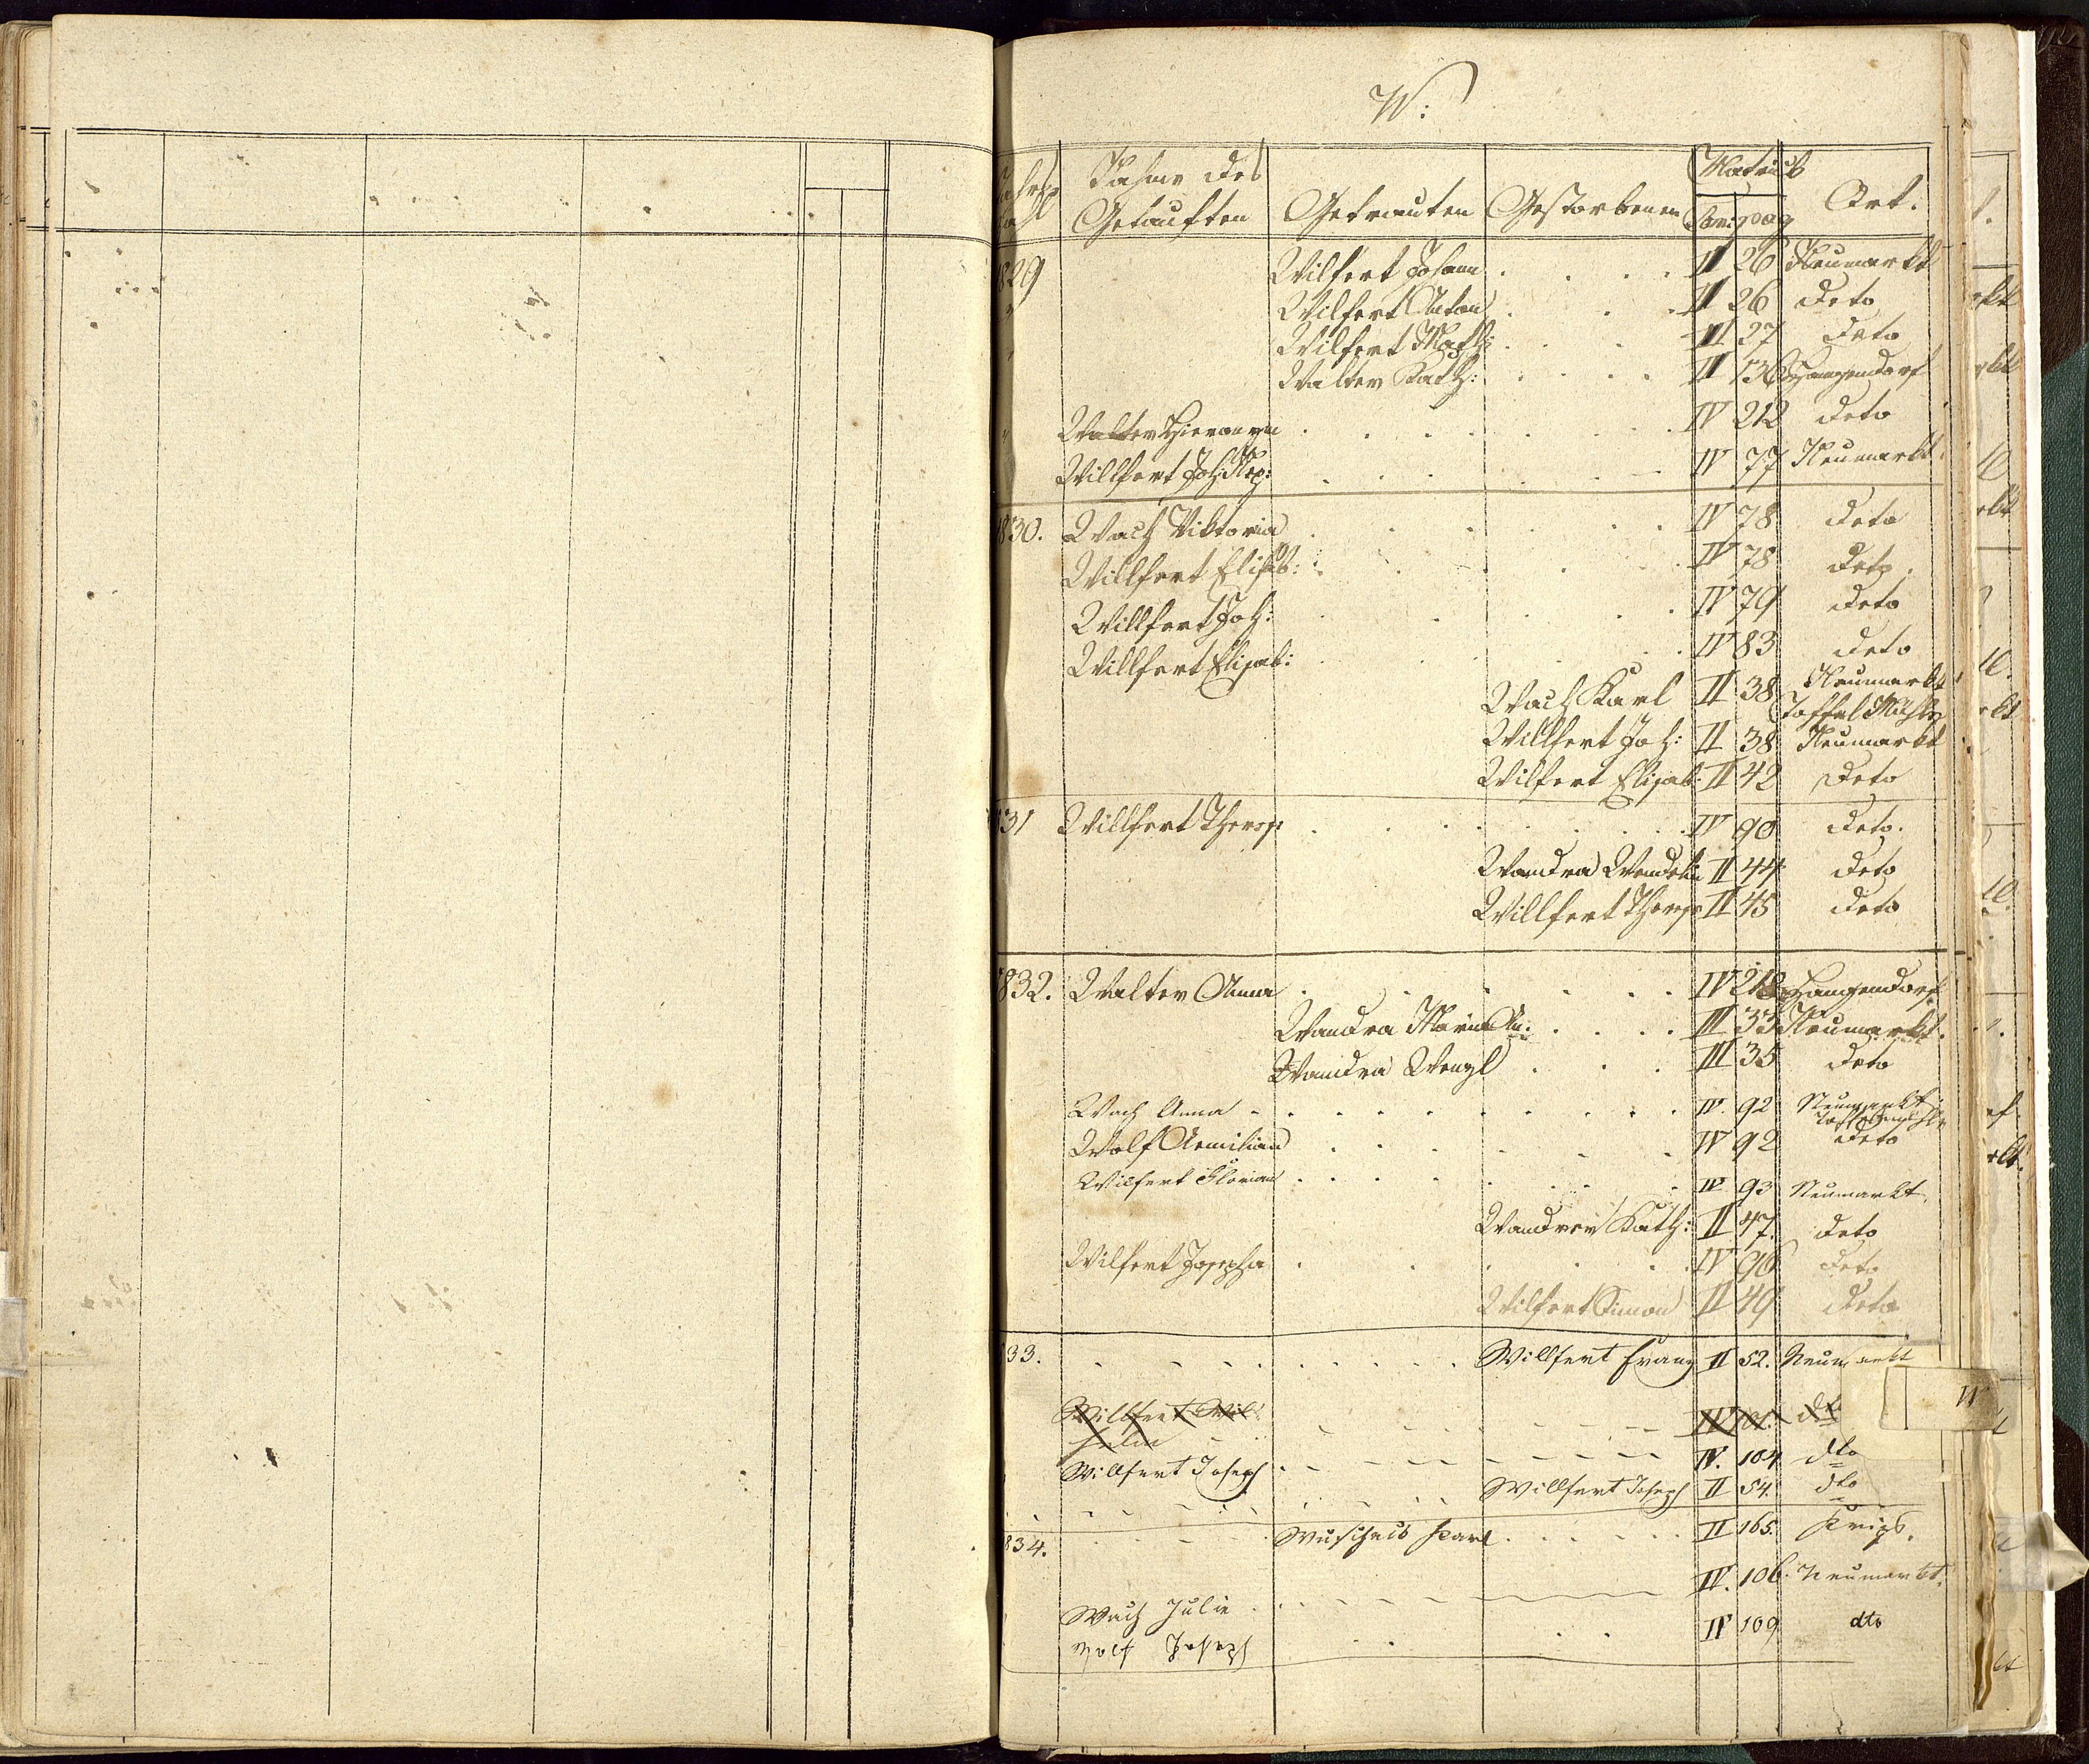 W:
Jahrs Nahme des Matrick
zahl Getauften Getrauten Gestorbenen Tom: pag Ort.
1829 Wilfert Johann II 26 Neumarkt
Wilfert Anton II 26 deto
Wilfert Math: II 27 deto
Walter Kath: II 136 Hangendorf
Walter Hieronym IV 212 deto
Willfert Joh: Nep: IV 77 Neumarkt
1830. Wach Viktoria IV 78 deto
Willfert Elisab: IV 78 deto.
Willfert Joh: IV 79 deto
Willfert Elisab: IV 83 deto
Wach Karl II 38 Neumarkt
Toffel Mühle
Willfert Joh: II 38 Neumarkt
Wilfert Elisab: II 42 deto
1831 Willfert Theres: IV 90 deto.
Wandra Wendelin II 44 deto
Willfert Theres II 45 deto
1832. Walter Anna IV 218 Hangendorf
Wandra Maria An. III 33 Neumarkt.
Wandra Wenzl III 35 deto
Wach Anna IV. 92 Neumarkt
Toffelmühle
Wolf Aemilian IV 92 deto
Wilfert Florian IV 93 Neumarkt.
Wandrer Kath: II 47. deto
Wilfert Josepha IV 96 deto
Wilfert Simon II 49 deto
1833. Willfert Franz II 52. Neumarkt
Willfert Wil= IV 101. dto
helm
Willfert Joseph IV. 104 dto
Willfert Joseph II 54. dto
1834. Wuscheck Karl II 165. Krips.
Wach Julie IV. 106. Neumarkt.
Wolf Joseph IV 109 dto
W